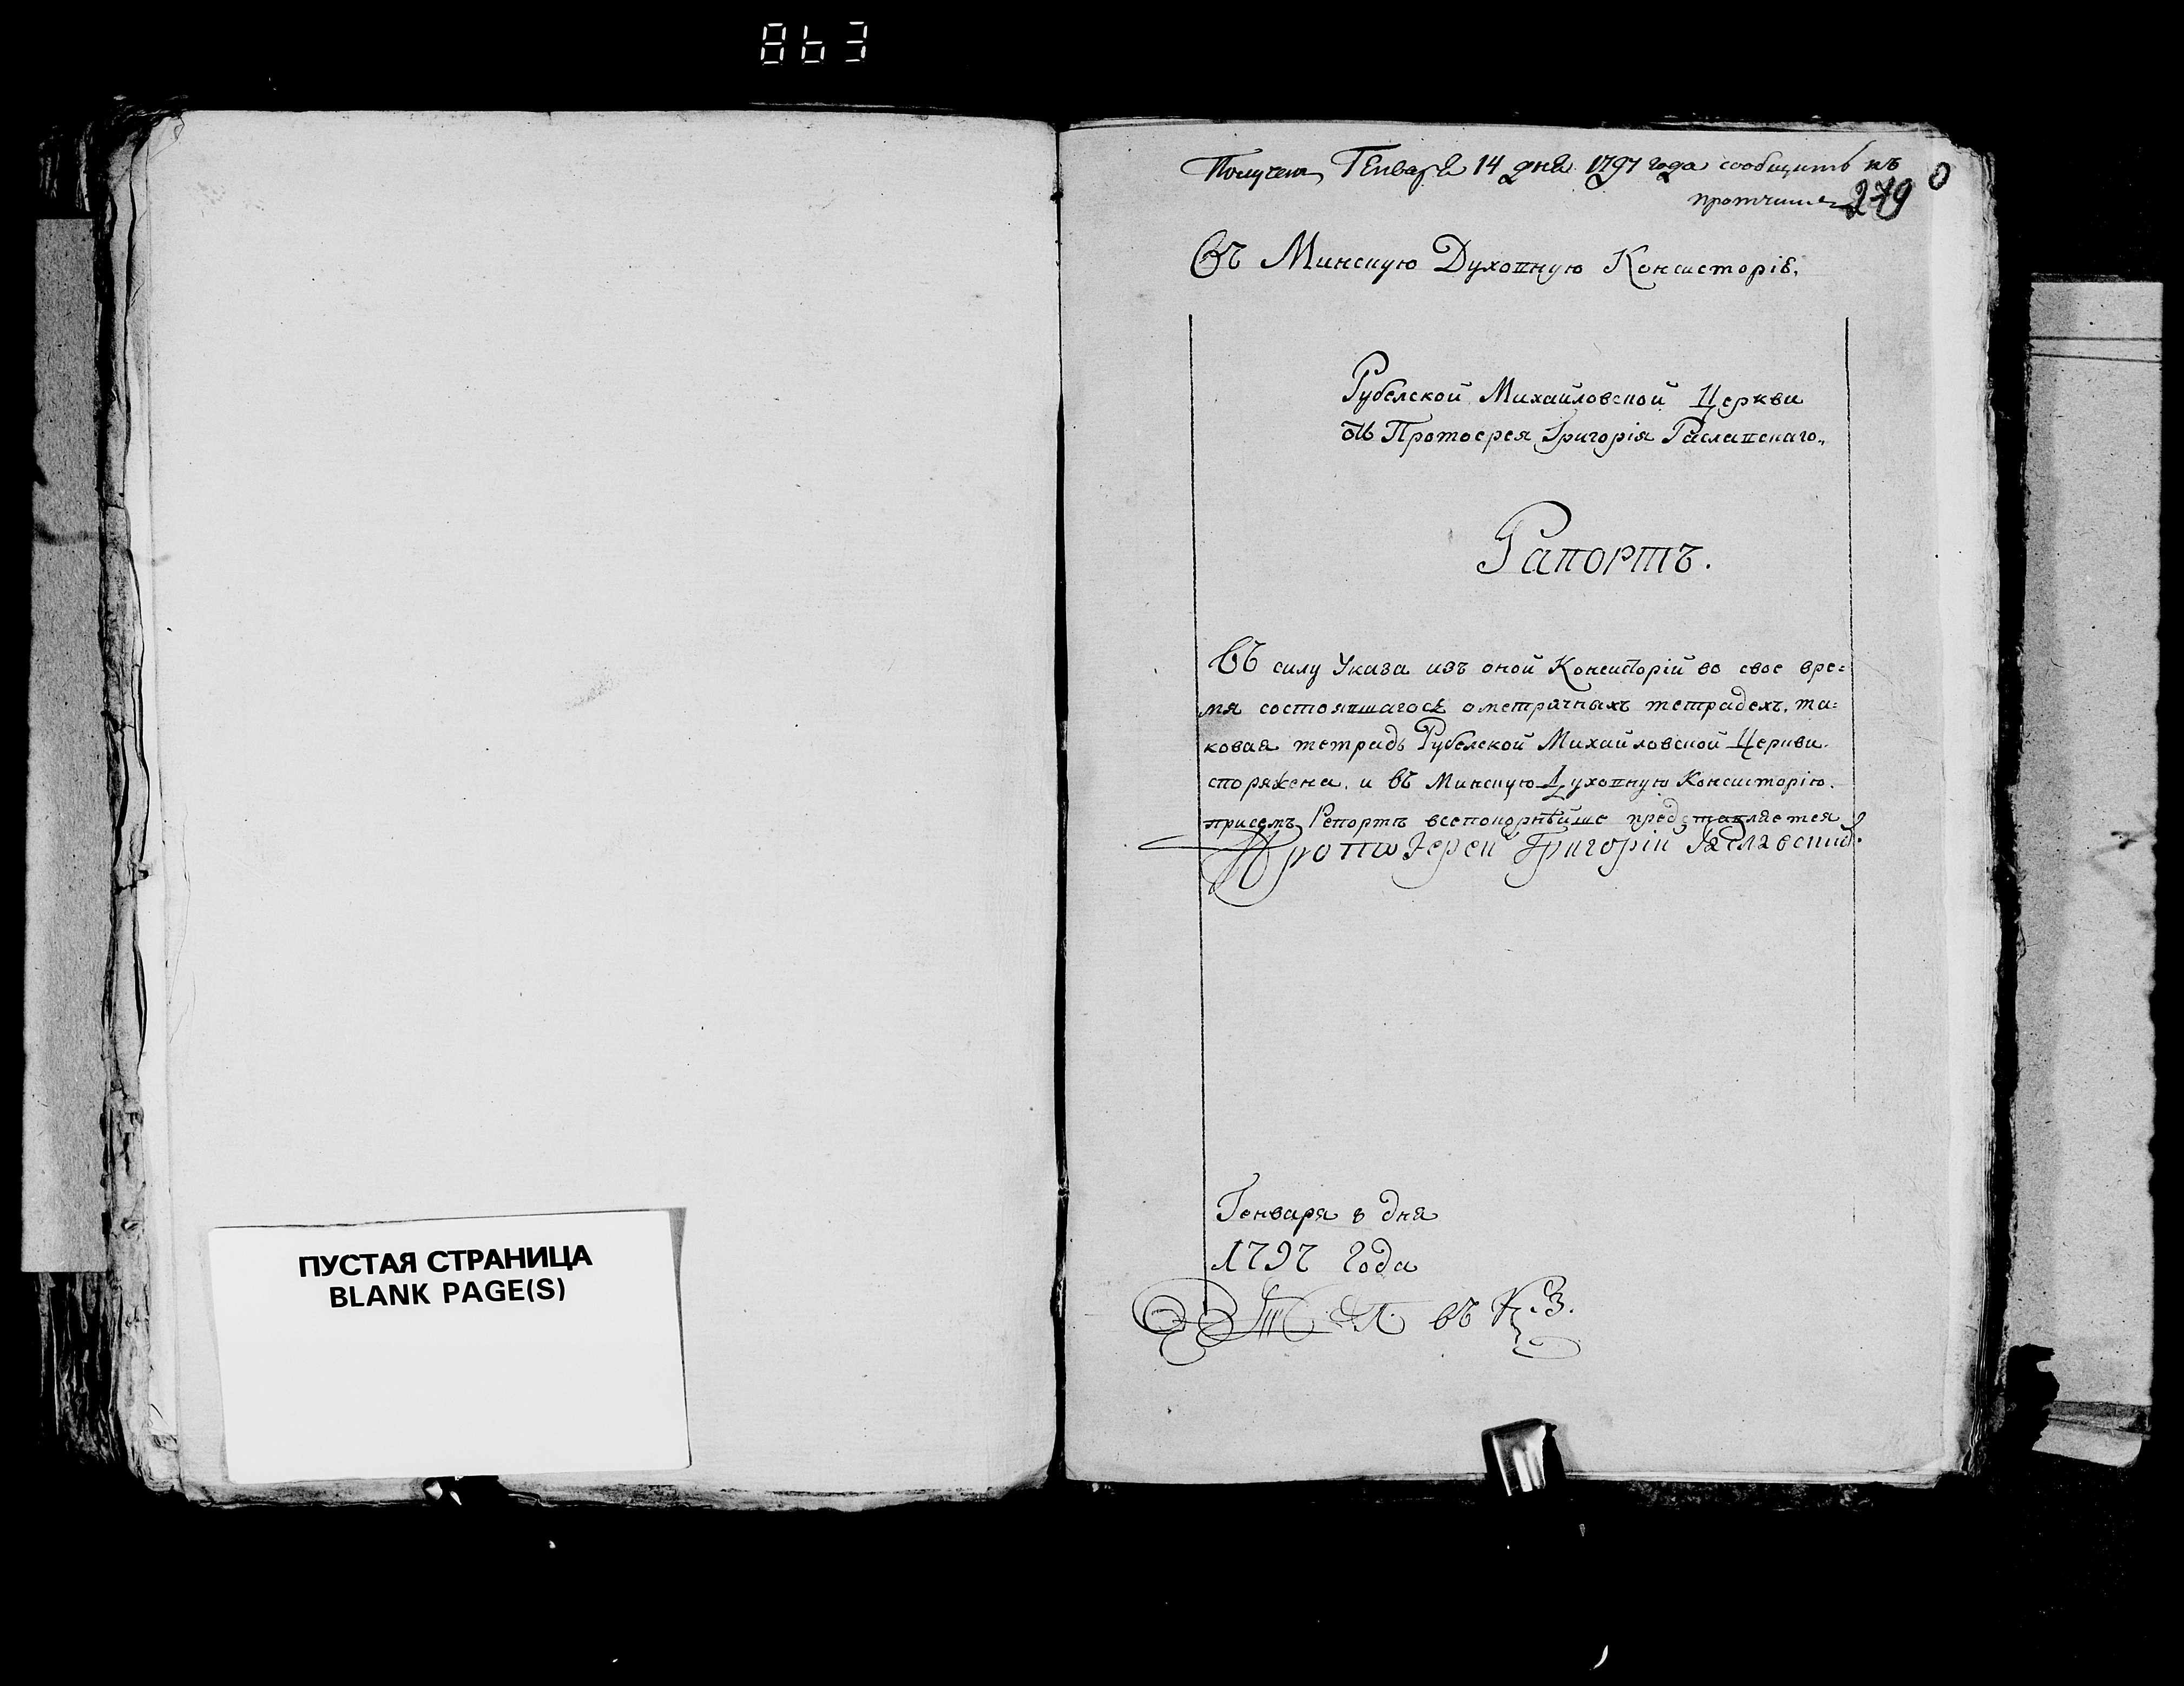 863
Получен Генваря 14 дня 1797 года сообщить къ
протчимъ
279
Въ Минскую Духовную Консисторію,
Рубелской Михайловской Церкви
отъ Протоерея Григорія Раславскаго.
Рапортъ.
Въ силу Указа изъ оной Консисторіи во свое вре=
мя состоявшагося ометричныхъ тетрадехъ, та=
ковая тетрадь Рубелской Михайловской Церкви
споряжена, и въ Минскую Духовную Консисторію.
присемъ Репортъ всепокорнѣйше представляется
Протоіерей Григорій Раславский.
ПУСТАЯ СТРАНИЦА
BLANK PAGE(S)
Генваря 8 дня
1797 Года
въ К. З.